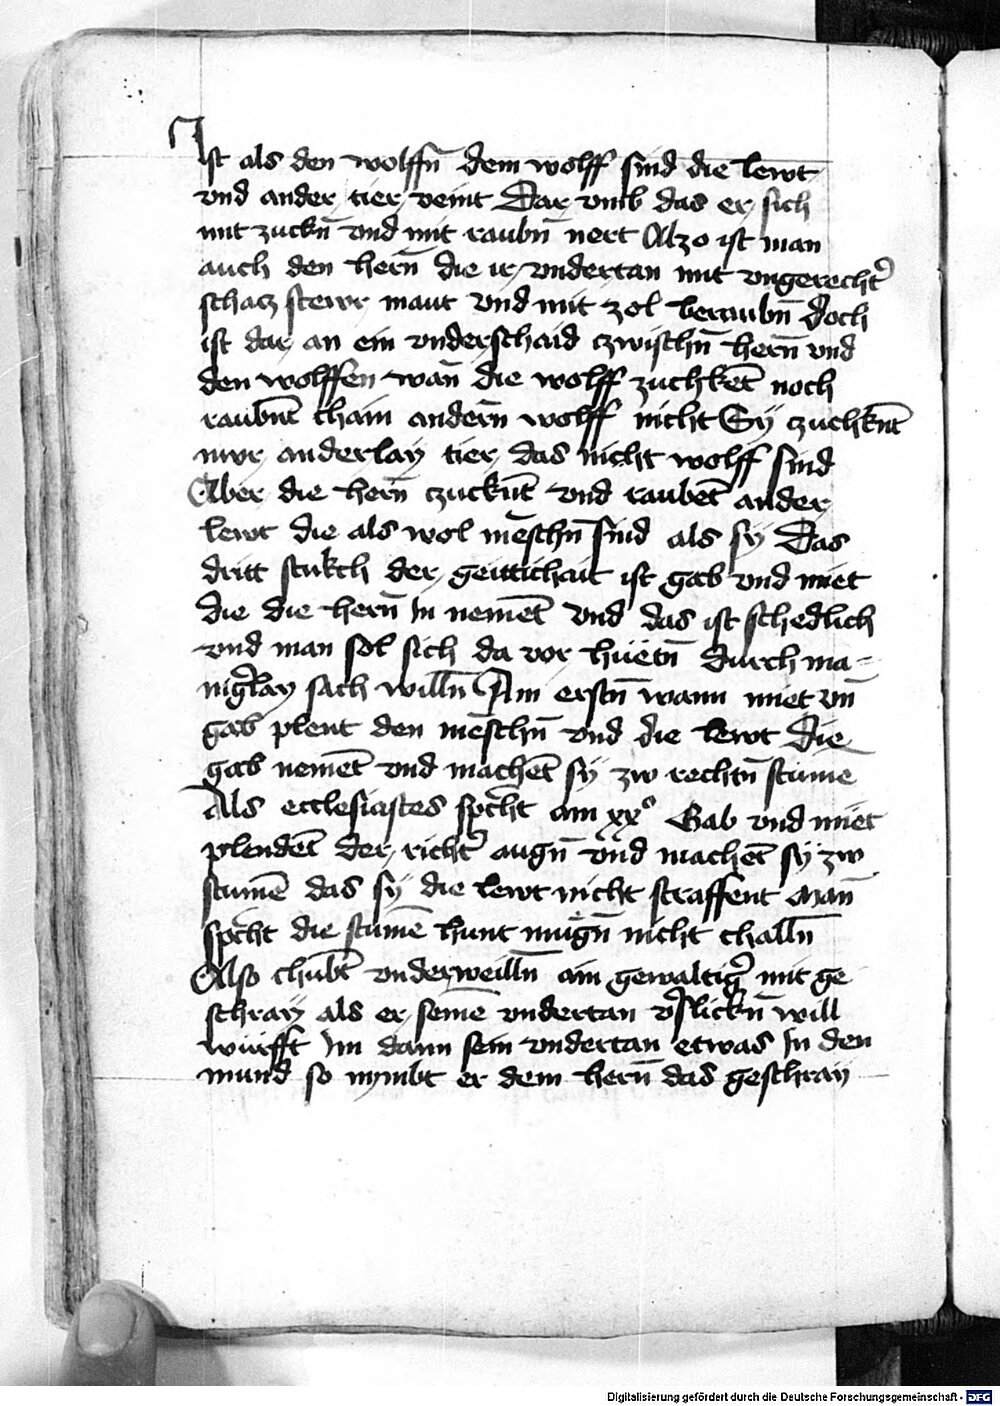 Ist als den wolffn̄ dem wolff sind die lewt
vnd ander tier veint Dar vmb das er sich
mit zuckn̄ vnd mit raubn̄ nert Alzo ist man
auch den hern̄ die ir vndertan mit vngerecht᷑
schacz stewr maut vnd mit zol beraubn̄ Doch
ist dar an ein vnderschaid czwischn̄ hern̄ vnd
den wolffen wan̄ die wolff zuchkēt noch
raubn̄t chain andern̄ wolff nicht Sÿ czuchkn̄t
nwr anderlay tier das nicht wolff sind
Aber die hern̄ czuckn̄t vnd raubēt ander
lewt die als wol mēschn̄ sind als sÿ Das
dritt stukch der geitichait ist gab vnd miet
die die hern̄ In nemēt vnd das ist schedlich
vnd man sol sich da vor hüetn̄ durch ma-
nig᷑lay sach willn̄ Am erstn̄ wann miet vn̄
gab plent den mēschn̄ vnd die lewt Die
gab nemēt vnd machēt sÿ zw rechtn̄ stūme
Als ecclesiastes sp̄cht am xxº Gab vnd miet
plendēt der richt᷑ augn̄ vnd machēt sÿ zw
stumē das sÿ die lewt nicht straffent Man̄
sp̄cht die stumē hunt mugn̄ nicht challn̄
Also chūbt vnderweilln̄ ain gewaltig᷑ mit ge
schray als er seinē vndertan v᷑slickn̄ will
würfft Im dann sein vndertan etwas In den
mund so nymbt er dem hern̄ das geschray
Digitalisierung gefördert durch die Deutsche Forschungsgemeinschaft - DFG